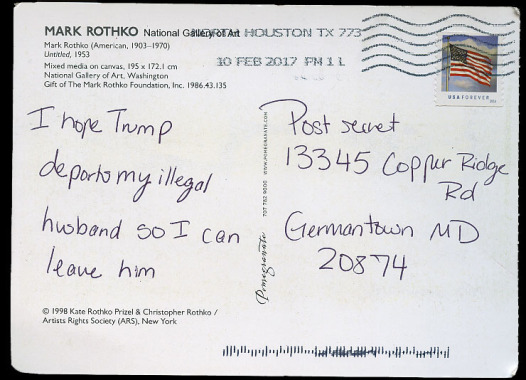 MARK ROTHKO National Gallery of Art
HOUSTON TX 773
Mark Rothko (American, 1903–1970)
Untitled, 1953
10 FEB 2017 PM 1 L
Mixed media on canvas, 195 x 172.1 cm
National Gallery of Art, Washington
Gift of The Mark Rothko Foundation, Inc. 1986.43.135
USA FOREVER
I hope Trump
deports my illegal
husband so I can
leave him
WWW.POMEGRANATE.COM
707 782 9000
Pomegranate
Post secret
13345 Copper Ridge
Rd
Germantown MD
20874
© 1998 Kate Rothko Prizel & Christopher Rothko /
Artists Rights Society (ARS), New York